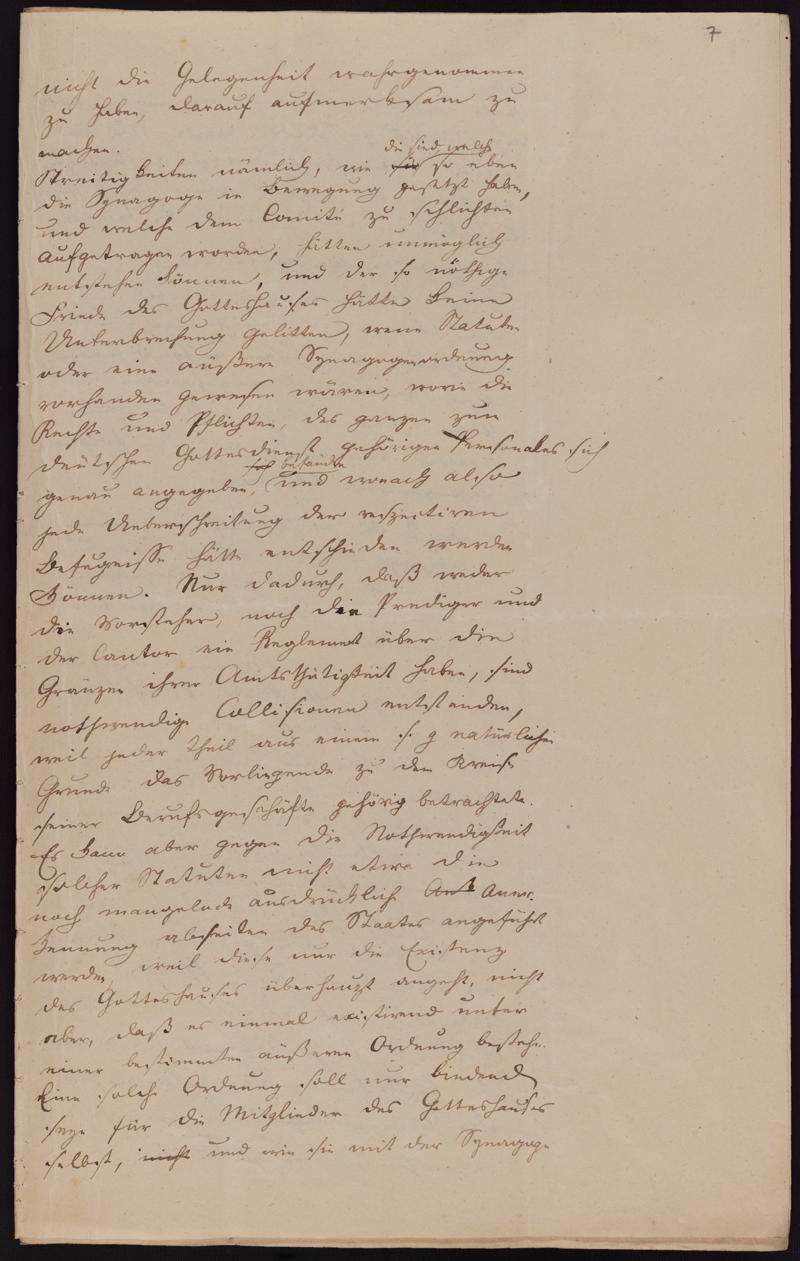 7
nicht die Gelegenheit wahrgenommen
zu haben, darauf aufmerksam zu
machen.
die sind welche
Streitigkeiten nämlich, wie sie so eben
die Synagoge in Bewegung gesetzt haben,
und welche dem Comité zu schlichten
aufgetragen worden, hätten unmöglich
entstehen können, und der so nöthige
Friede des Gotteshauses hätte keine
Unterbrechung gelitten, wenn Statuten
oder eine äußere Synagogenordnung
vorhanden gewesen wären, worin die
Rechte und Pflichten, des ganzen zum
deutschen Gottesdienst gehörigen Personales sich
sich befänden
genau angegeben, und wonach also
jede Ueberschreitung der respectiven
Befugnisse hätte entschieden werden
können. Nur dadurch, daß weder
die Vorsteher, noch die Prediger und
der Cantor ein Reglement über die
Gränzen ihrer Amtsthätigkeit haben, sind
nothwendige Collisionen entstanden,
weil jeder Theil aus einem s. g natürlichen
Grunde das Vorliegende zu dem Kreise
seiner Berufsgeschäfte gehörig betrachtete.
Es kann aber gegen die Nothwendigkeit
solcher Statuten nicht etwa die
noch mangelnde ausdrückliche Aner-
kennung abseiten des Staates angeführt
werden, weil diese nur die Existenz
des Gotteshauses überhaupt angeht, nicht
aber, daß es einmal existirend unter
einer bestimmten äußeren Ordnung bestehe.
Eine solche Ordnung soll nur bindend
seyn für die Mitglieder des Gotteshauses
selbst, nicht und wie sie mit der Synagoge